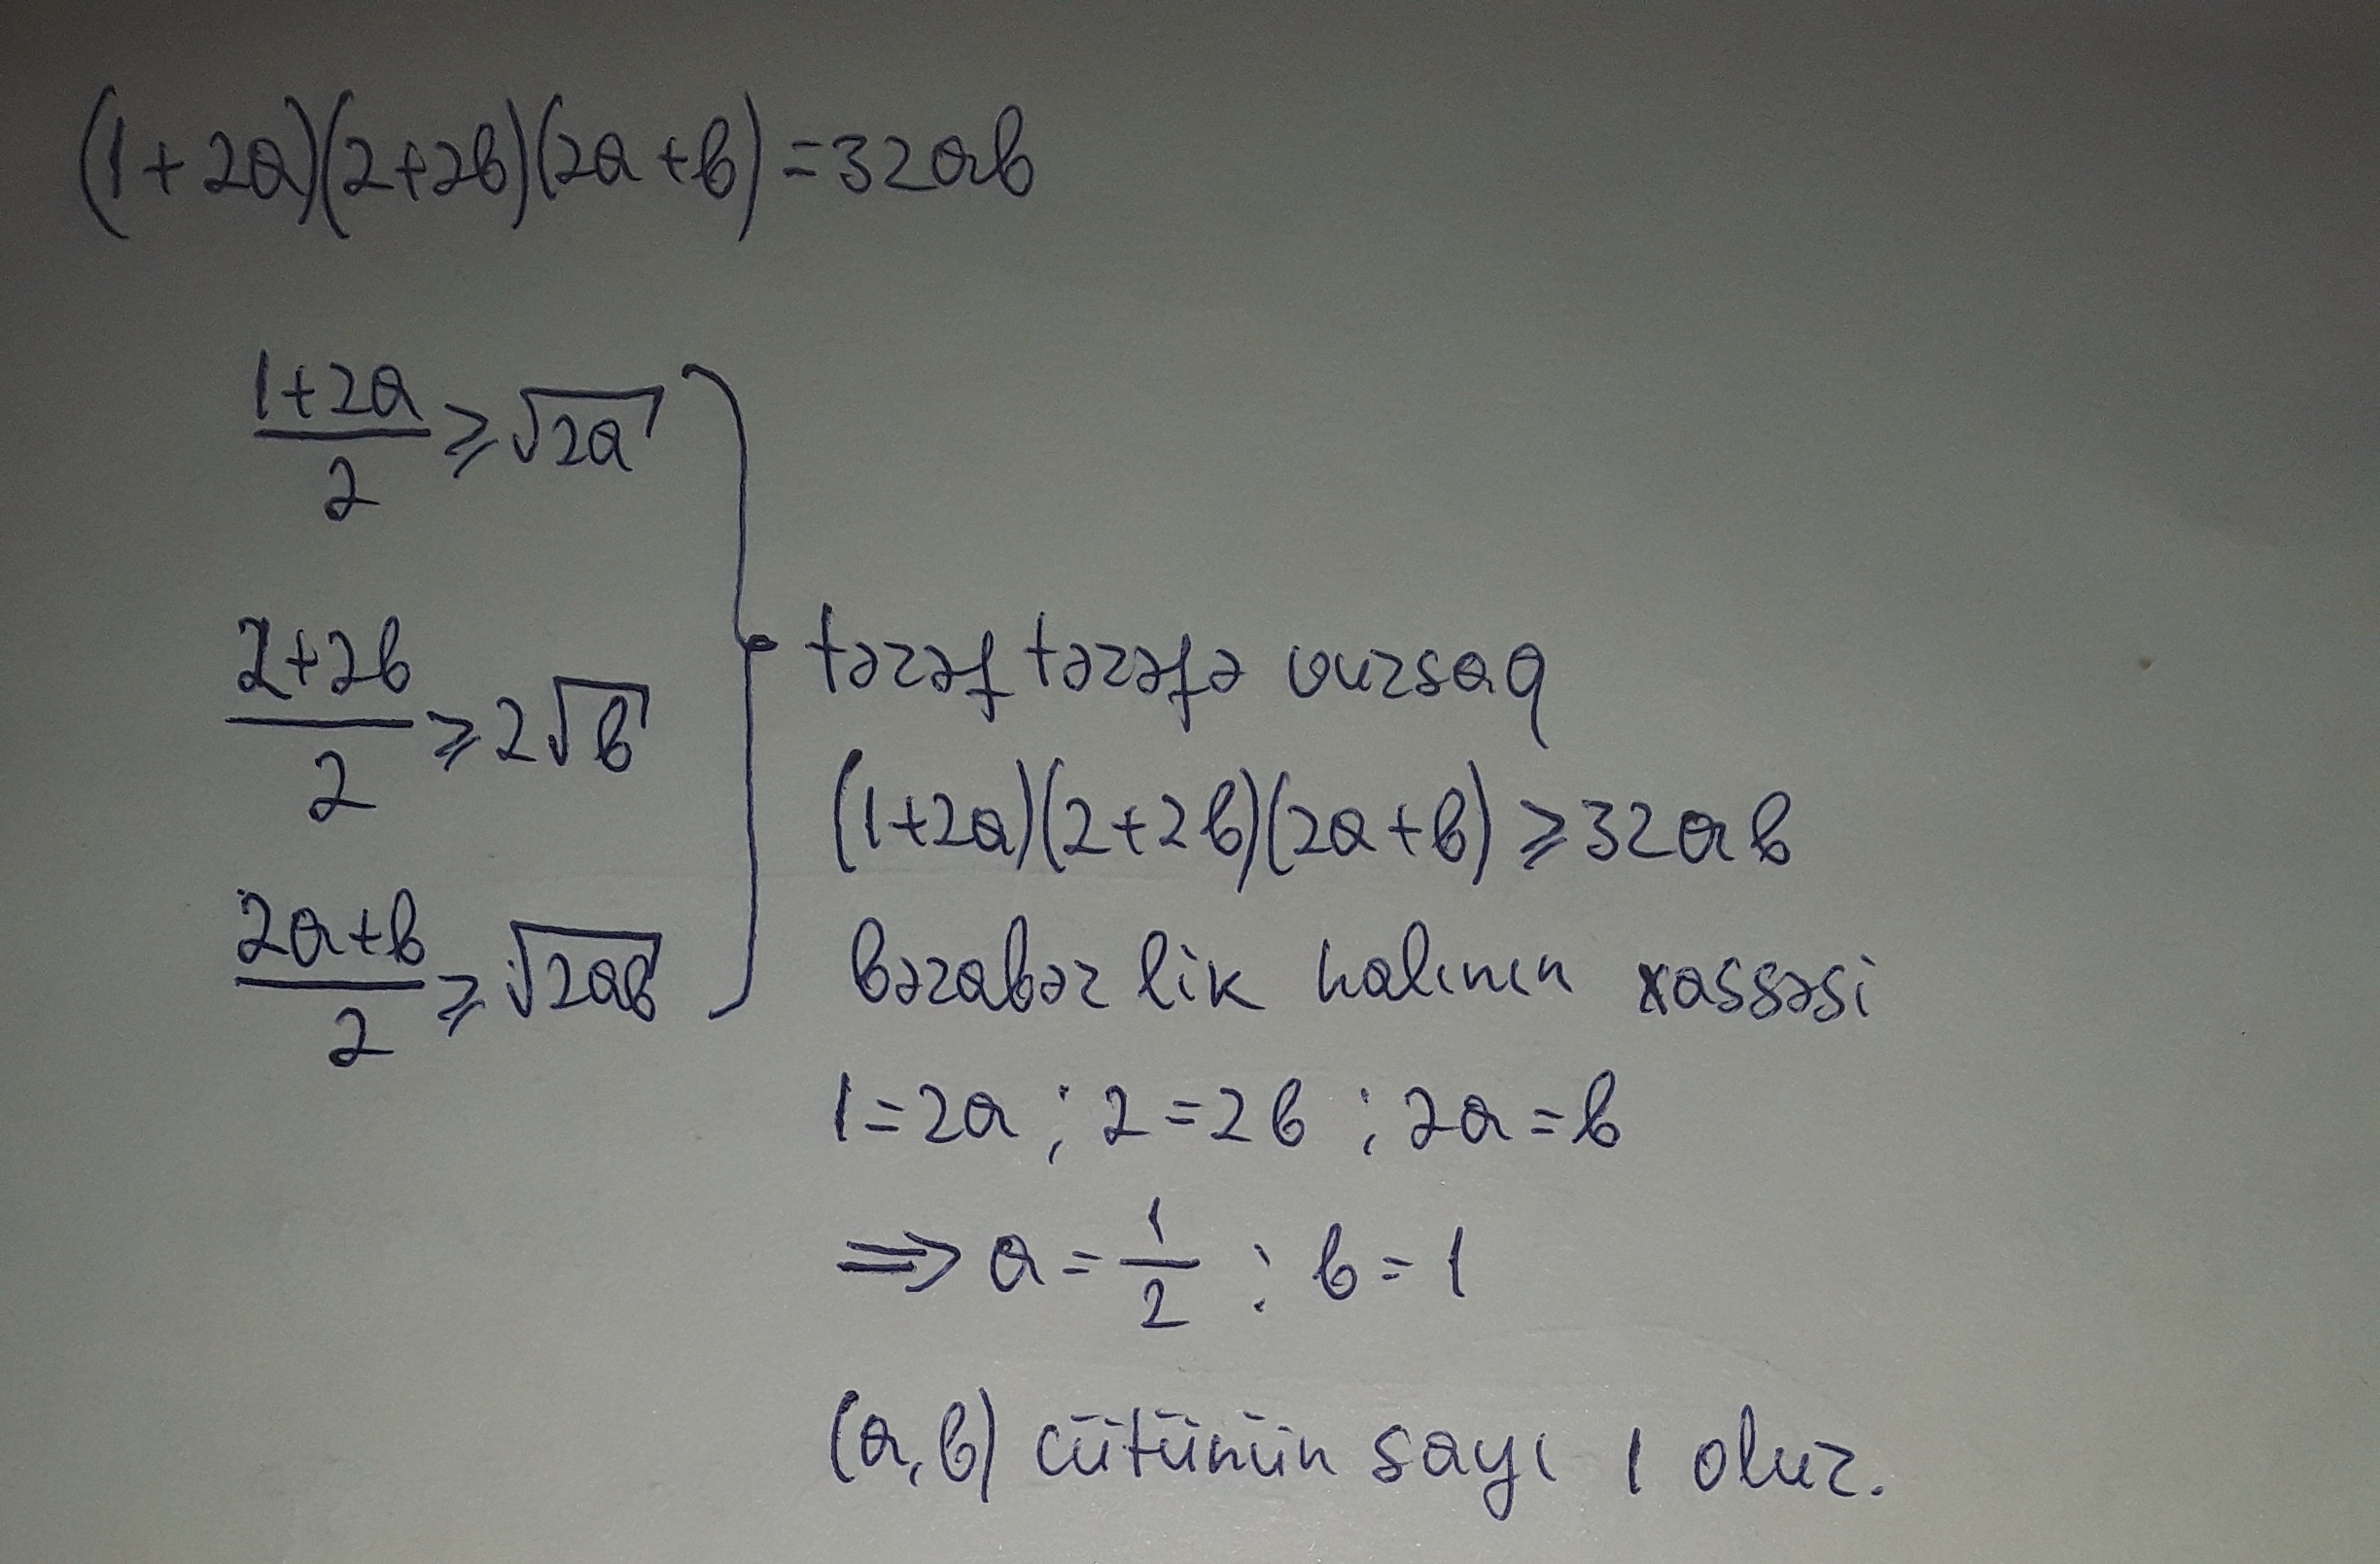 (1+2a)(2+2b)(2a+b)=32ab
(1+2a)/2 ≥ √2a
(2+2b)/2 ≥ 2√b
(2a+b)/2 ≥ √2ab
tərəf tərəfə vursaq
(1+2a)(2+2b)(2a+b) ≥ 32ab
bərabərlik halının xassəsi
1=2a ; 2=2b ; 2a=b
⇒ a = 1/2 ; b=1
(a,b) cütünün sayı 1 olur.